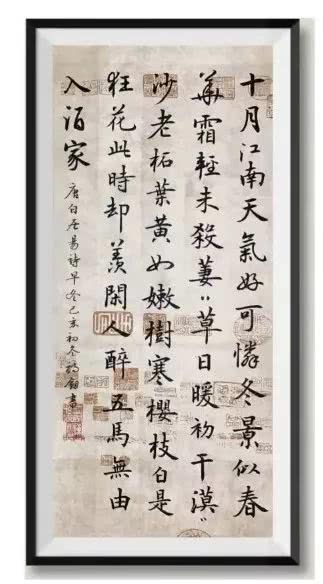 十月江南天氣好可憐冬景似春
華霜輕未殺萋〃草日暖初干漠〃
沙老柘葉黃如嫩樹寒櫻枝白是
狂花此時却羨閑人醉五馬無由
入酒家
唐白居易詩早冬己亥初冬書